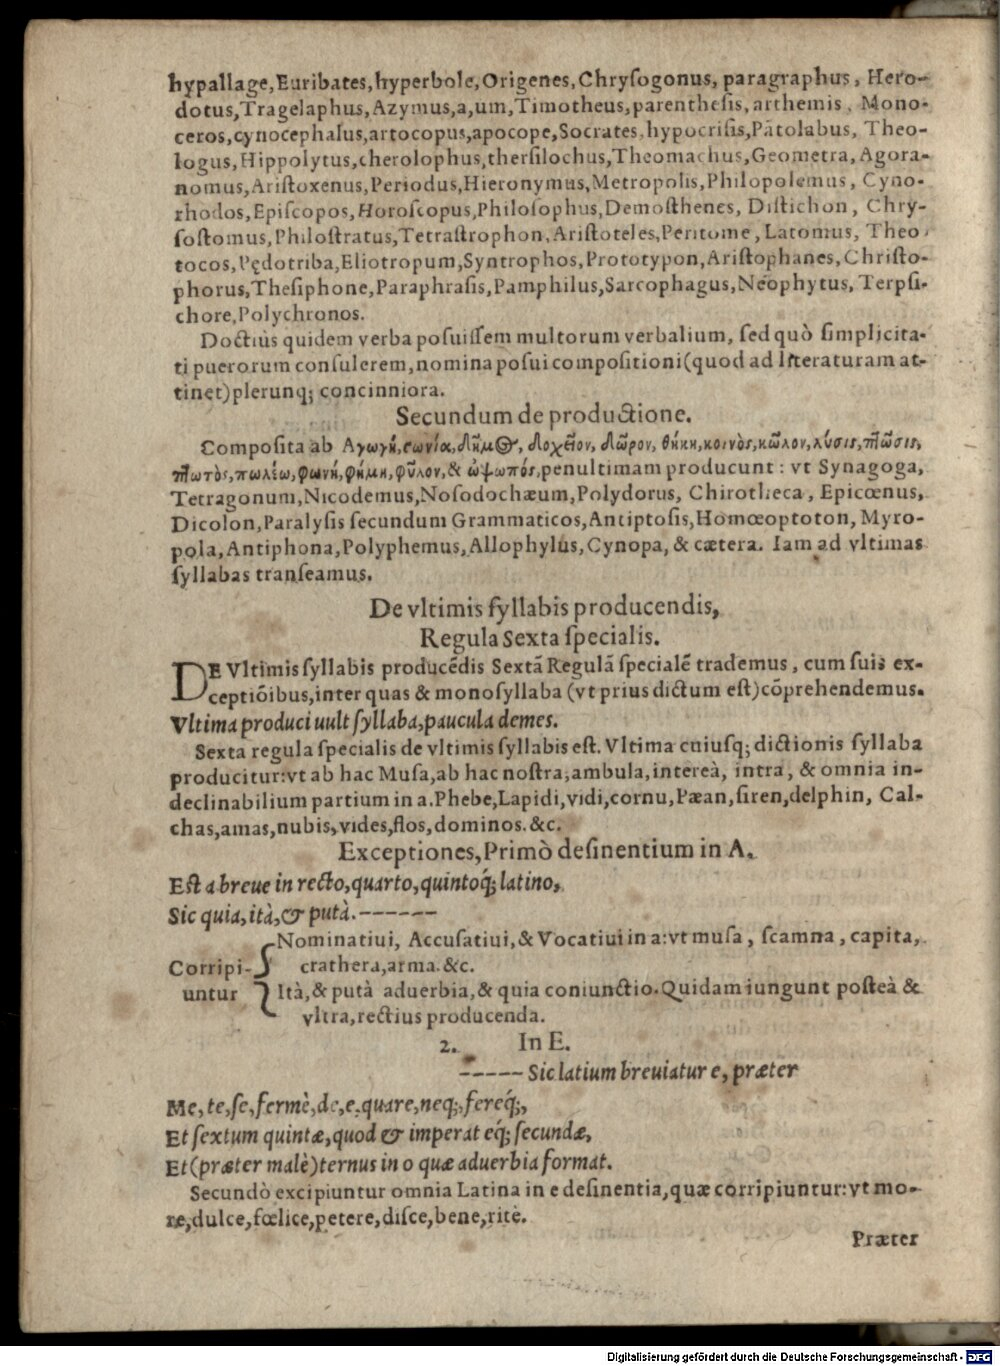 hypallage,Euribates,hyperbole,Origenes,Chryſogonus, paragraphus, Hero-
dotus,Tragelaphus,Azymus,a,um,Timotheus,parentheſis,arthemis, Mono-
ceros,cynocephalus,artocopus,apocope,Socrates,hypocriſis,Pātolabus, Theo-
logus,Hippolytus,cherolophus,therſilochus,Theomachus,Geometra,Agora-
nomus,Ariſtoxenus,Periodus,Hieronymus,Metropolis,Philopolemus, Cyno-
rhodos,Epiſcopos,Horoſcopus,Philoſophus,Demoſthenes, Diſtichon, Chry-
ſoſtomus,Philoſtratus,Tetraſtrophon,Ariſtoteles,Peritome,Latomus, Theo-
tocos,Pędotriba,Eliotropum,Syntrophos,Prototypon,Ariſtophanes,Chriſto-
phorus,Theſiphone,Paraphraſis,Pamphilus,Sarcophagus,Neophytus, Terpſi-
chore,Polychronos.
Doctiùs quidem verba poſuiſſem multorum verbalium, ſed quò ſimplicita-
ti puerorum conſulerem,nomina poſui compoſitioni(quod ad literaturam at-
tinet)plerunq; concinniora.
Secundum de productione.
Compoſita ab Αγωγή,γωνία,δῆμος, δοχεῖον, δῶρον, θήκη,κοινὸς,κῶλον,λύσις,πτῶσις,
πτωτὸς,πωλέω,φωνή,φήμη,φῦλον,& ὠψωπός,penultimam producunt: vt Synagoga,
Tetragonum,Nicodemus,Noſodochæum,Polydorus, Chirotheca, Epicœnus,
Dicolon,Paralyſis ſecundum Grammaticos,Antiptoſis,Homœoptoton, Myro-
pola,Antiphona,Polyphemus,Allophylus,Cynopa, & cætera. Iam ad vltimas
ſyllabas tranſeamus.
De vltimis ſyllabis producendis,
Regula Sexta ſpecialis.
DE Vltimis ſyllabis producēdis Sextā Regulā ſpecialē trademus, cum ſuis ex-
ceptiōibus,inter quas & monoſyllaba (vt prius dictum eſt)cōprehendemus.
Vltima produci uult ſyllaba,paucula demes.
Sexta regula ſpecialis de vltimis ſyllabis eſt. Vltima cuiuſq; dictionis ſyllaba
producitur:vt ab hac Muſa,ab hac noſtra,ambula,intereà, intra, & omnia in-
declinabilium partium in a.Phebe,Lapidi,vidi,cornu,Pæan,ſiren,delphin, Cal-
chas,amas,nubis,vides,flos,dominos.&c.
Exceptiones,Primò deſinentium in A.
Eſt a breue in recto,quarto,quintoq́; latino,
Sic quia,ità,& putà.------
Nominatiui, Accuſatiui,& Vocatiui in a:vt muſa, ſcamna, capita,
Corripi- crathera,arma.&c.
untur Ità,& putà aduerbia,& quia coniunctio.Quidam iungunt poſteà &
vltra,rectius producenda.
2. In E.
----- Sic latium breuiatur e, præter
Me,te,ſe,fermè,de,e,quare,neq;,fereq́;,
Et ſextum quintæ,quod & imperat eq́; ſecundæ,
Et(præter malè)ternus in o quæ aduerbia format.
Secundò excipiuntur omnia Latina in e deſinentia,quæ corripiuntur:vt mo-
re,dulce,fœlice,petere,diſce,bene,ritè.
Præter
Digitalisierung gefördert durch die Deutsche Forschungsgemeinschaft - DFG